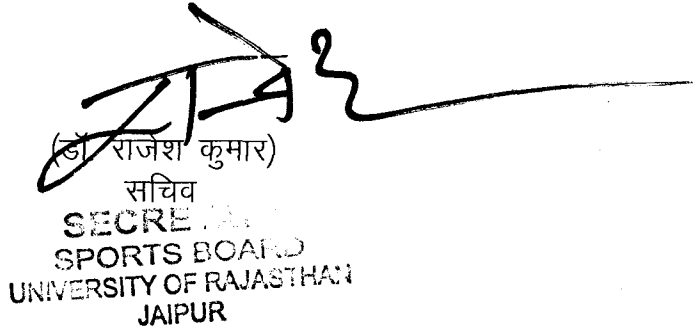 (डॉ. राजेश कुमार)
सचिव
SPORTS BOARD
UNIVERSITY OF RAJASTHAN
JAIPUR